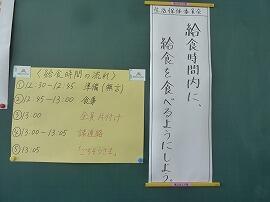 〈給食時間の流れ〉
①12:30-12:45 準備(無言)
②12:45-13:00 食事
③13:00 全員片付け
④13:00-13:05 諸連絡
⑤13:05 「ごちそうさま」
給食時間内に、
給食を食べるようにしよう。